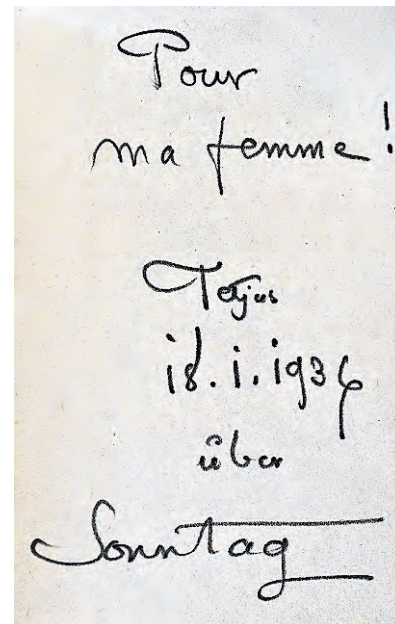 Pour
ma femme!
18.1.1934
über
Sonntag